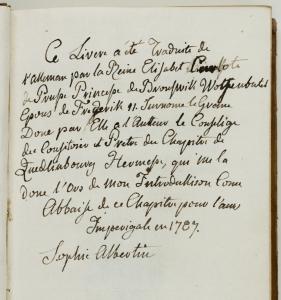 Ce Livere a été Traduite de
l'alleman par la Reine Elisabet
de Prusse Princesse de Bronswik Wolfenbutel
Epous de Frederik Surnome le Grane
Done par Elle a l'auteur le
du Consistoire et Pretre du Chapitre de
Quedlinbourg Hermess, qui me la
done l'ors de mon Introduktison Come
Abbaise de ce Chapitre pour l'ame
Imperigale en 1787.
Sophie Albertin